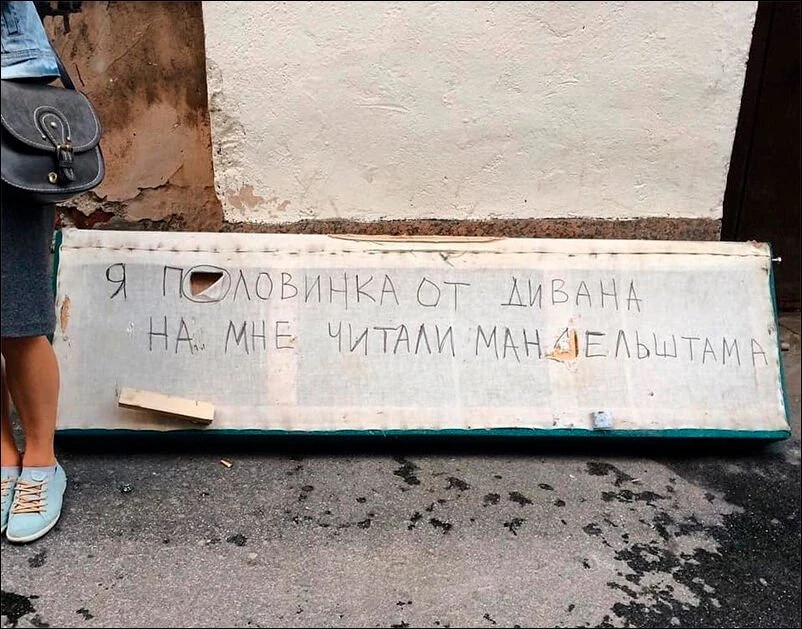 Я ПОЛОВИНКА ОТ ДИВАНА
НА МНЕ ЧИТАЛИ МАНДЕЛЬШТАМА